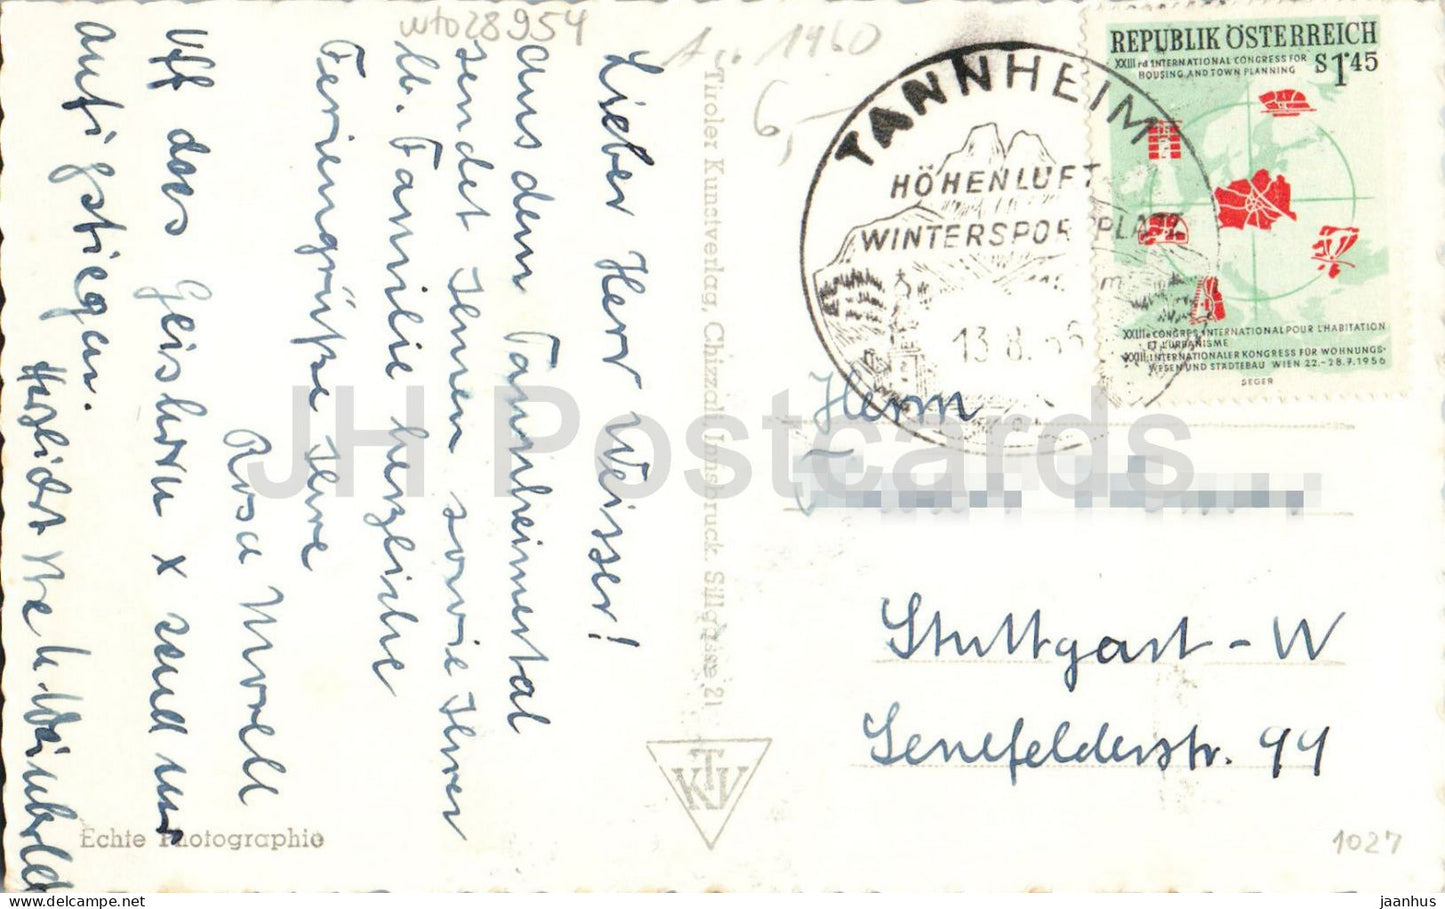 wto28954
1960
6,-
Lieber Herr Weisser!
aus dem Tannheimertal
sendet Ihnen sowie Ihrer
lb. Familie herzliche
Feriengrüße Ihre
Rosa Morell
Uff das Geishorn x send mr
aufigstiegan.
Herzlichst Ihre
Echte Photographie
Tiroler Kunstverlag, Chizzali Innsbruck. Sillgasse 21
KTV
TANNHEIM
HÖHENLUFT
WINTERSPORTPLATZ
13.8.56
REPUBLIK ÖSTERREICH
XXIIIrd INTERNATIONAL CONGRESS FOR
HOUSING AND TOWN PLANNING
S1.45
XXIIIe CONGRES INTERNATIONAL POUR L'HABITATION
ET L'URBANISME
XXIII. INTERNATIONALER KONGRESS FÜR WOHNUNGS-
WESEN UND STÄDTEBAU WIEN 22.-28.7.1956
SEGER
Herrn
Stuttgart-W
Senefelderstr. 99
1027
JH Postcards
jaanhus